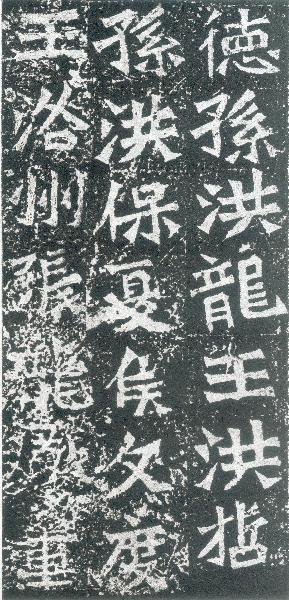 德孫洪龍王洪
孫洪保夏侯文度
王洛州張龍